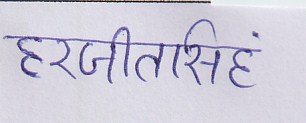 हरजीतसिहं